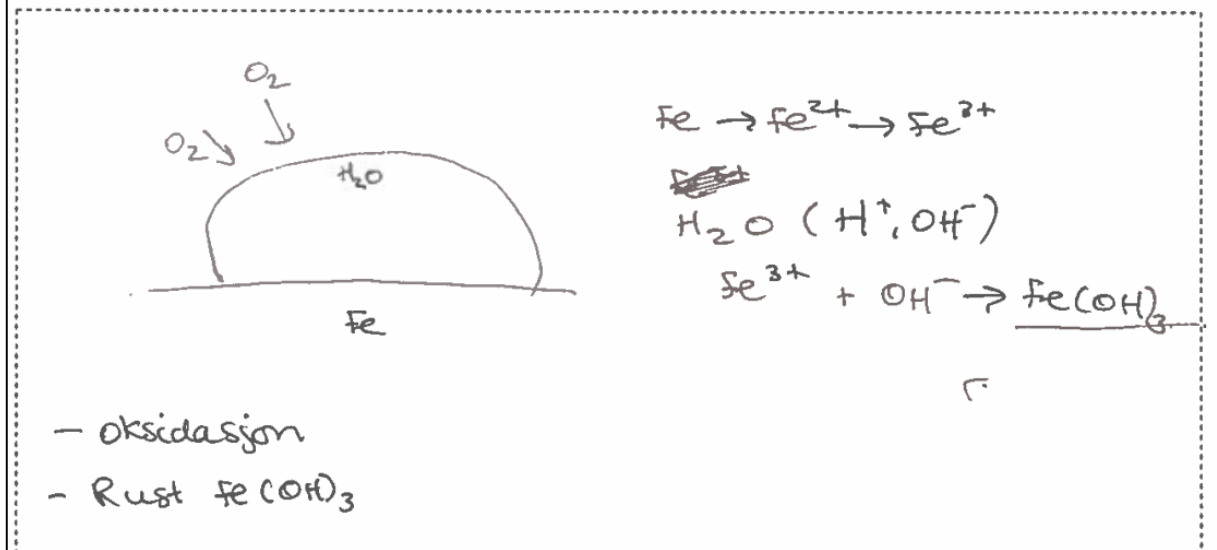 O₂
O₂
H₂O
Fe
Fe → Fe²⁺ → Fe³⁺
H₂O (H⁺, OH⁻)
Fe³⁺ + OH⁻ → Fe(OH)₃
- Oksidasjon
- Rust Fe(OH)₃